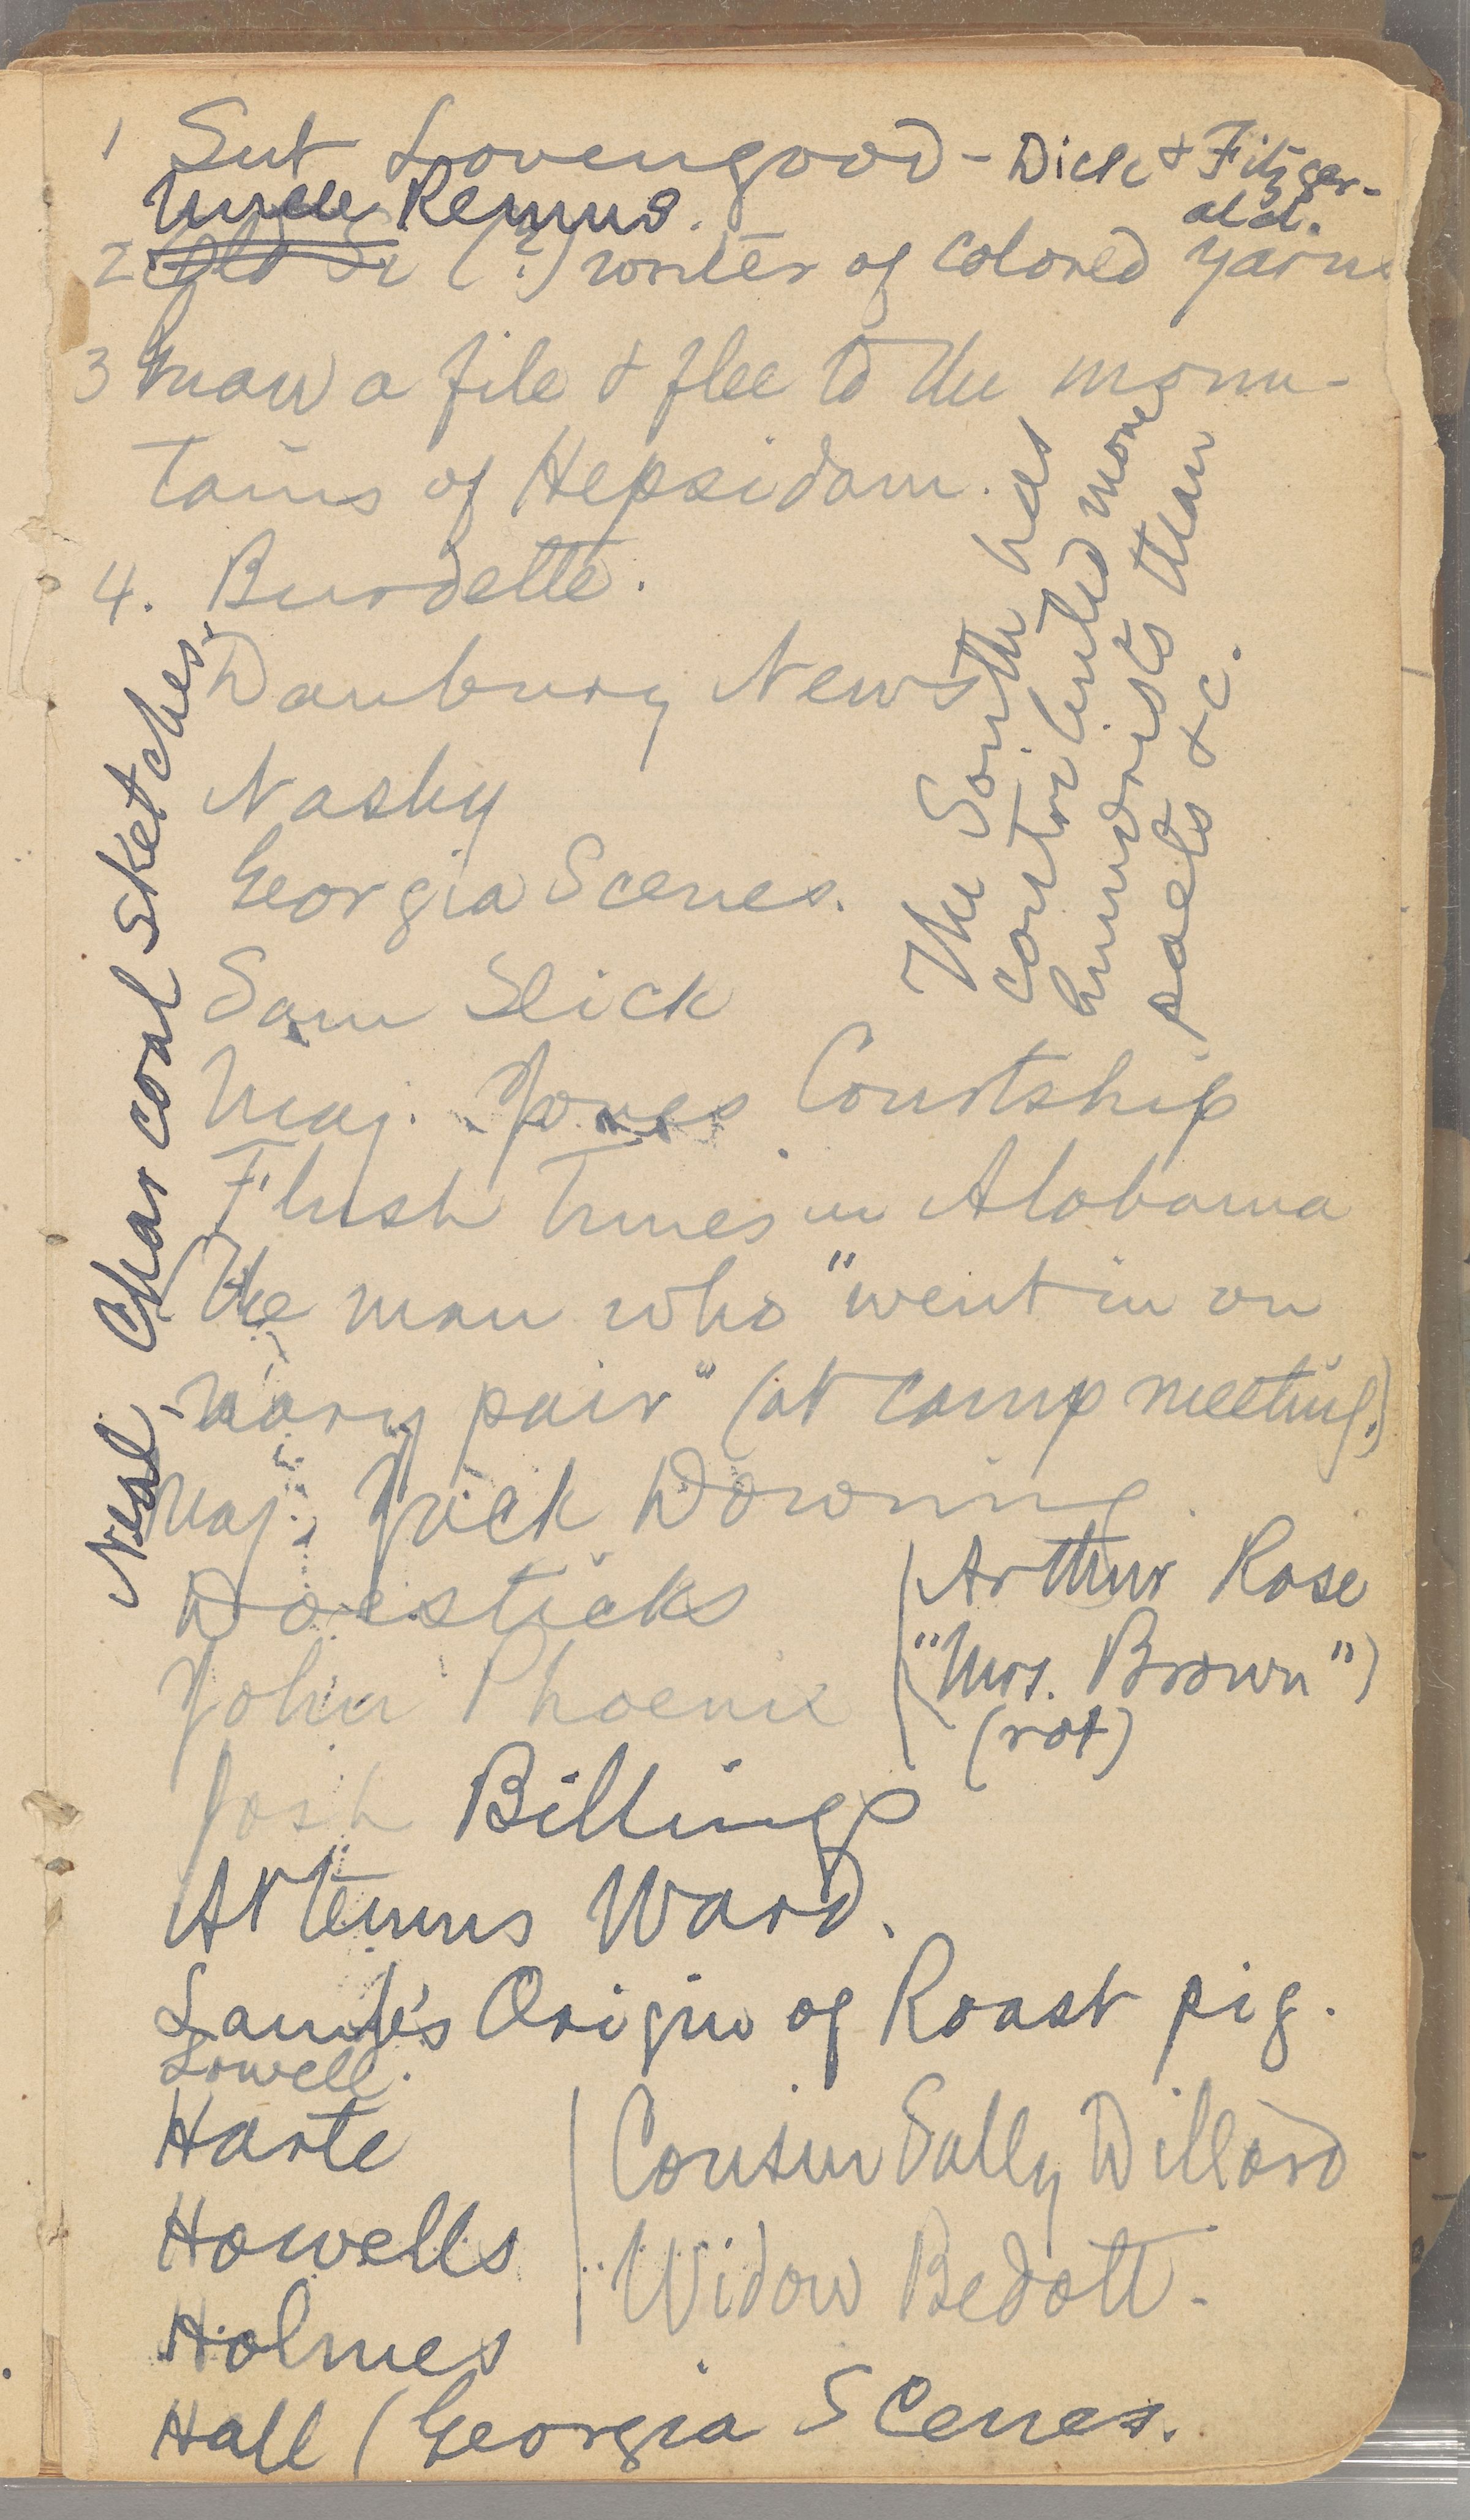 1 Sut Lovengood - Dick & Fitzger-
ald.
Uncle Remus.
2 Old Si (?) writer of colored yarns
3 Gnaw a file & flee to the moun-
tains of Hepsidam.
4. Burdette.
Danbury News
Nasby
Georgia Scenes.
Sam Slick
Maj. Jones Courtship
Flush Times in Alabama
The man who "went in on
nary pair" (at camp meeting.)
Maj. Jack Downing
Doesticks
John Phoenix
Josh Billings
Artemus Ward.
Lamb's Origin of Roast pig.
Lowell.
Harte
Howells
Holmes
Hall (Georgia Scenes.
Neal, Charcoal Sketches.
The South has
contributed more
humorists than
poets &c.
Arthur Rose
("Mrs. Brown")
(rot)
Cousin Sally Dillard
Widow Bedott.